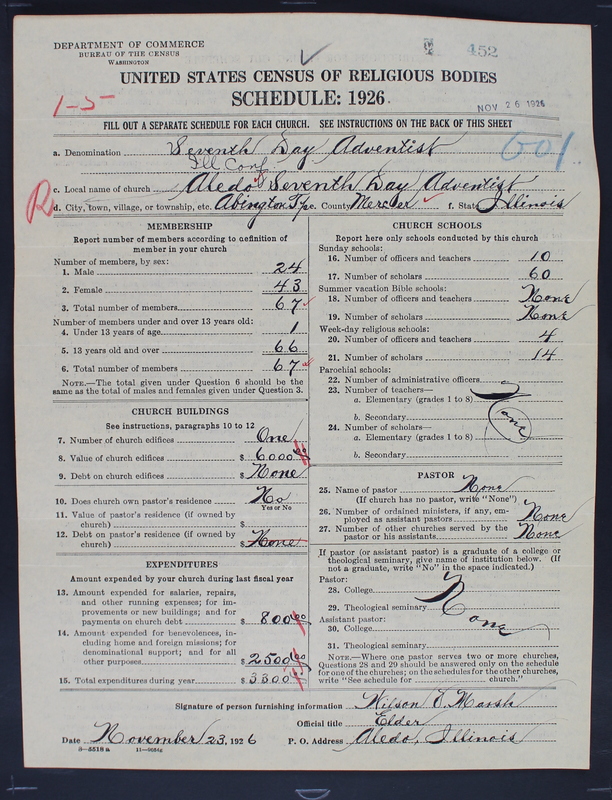 DEPARTMENT OF COMMERCE
BUREAU OF THE CENSUS
WASHINGTON
452
UNITED STATES CENSUS OF RELIGIOUS BODIES
SCHEDULE: 1926.
1-5
NOV 26 1926
FILL OUT A SEPARATE SCHEDULE FOR EACH CHURCH. SEE INSTRUCTIONS ON THE BACK OF THIS SHEET
a. Denomination Seventh Day Adventist
601
Ill Conf
c. Local name of church Aledo Seventh Day Adventist
R
d. City, town, village, or township, etc. Abington Tp e. County Mercer f. State Illinois
MEMBERSHIP
Report number of members according to definition of
member in your church
Number of members, by sex:
1. Male 24
2. Female 43
3. Total number of members 67
Number of members under and over 13 years old:
4. Under 13 years of age 1
5. 13 years old and over 66
6. Total number of members 67
NOTE.—The total given under Question 6 should be the
same as the total of males and females given under Question 3.
CHURCH BUILDINGS
See instructions, paragraphs 10 to 12
7. Number of church edifices One
8. Value of church edifices $ 6000.00
9. Debt on church edifices $ None
10. Does church own pastor's residence No
Yes or No
11. Value of pastor's residence (if owned by
church) $
12. Debt on pastor's residence (if owned by
church) $ None
EXPENDITURES
Amount expended by your church during last fiscal year
13. Amount expended for salaries, repairs,
and other running expenses; for im-
provements or new buildings; and for
payments on church debt $ 800.00
14. Amount expended for benevolences, in-
cluding home and foreign missions; for
denominational support; and for all
other purposes $ 2500.00
15. Total expenditures during year $ 3300.00
CHURCH SCHOOLS
Report here only schools conducted by this church
Sunday schools:
16. Number of officers and teachers 10
17. Number of scholars 60
Summer vacation Bible schools:
18. Number of officers and teachers None
19. Number of scholars None
Week-day religious schools:
20. Number of officers and teachers 4
21. Number of scholars 14
Parochial schools:
22. Number of administrative officers
23. Number of teachers—
a. Elementary (grades 1 to 8)
b. Secondary
None
24. Number of scholars—
a. Elementary (grades 1 to 8)
b. Secondary
PASTOR
25. Name of pastor None
(If church has no pastor, write "None")
26. Number of ordained ministers, if any, em-
ployed as assistant pastors None
27. Number of other churches served by the
pastor or his assistants None
If pastor (or assistant pastor) is a graduate of a college or
theological seminary, give name of institution below. (If
not a graduate, write "No" in the space indicated.)
Pastor:
28. College
29. Theological seminary
None
Assistant pastor:
30. College
31. Theological seminary
NOTE.—Where one pastor serves two or more churches,
Questions 28 and 29 should be answered only on the schedule
for one of the churches; on the schedules for the other churches,
write "See schedule for church."
Signature of person furnishing information Wilson E. Marsh
Official title Elder
Date November 23, 1926 P. O. Address Aledo, Illinois
8—5518 a